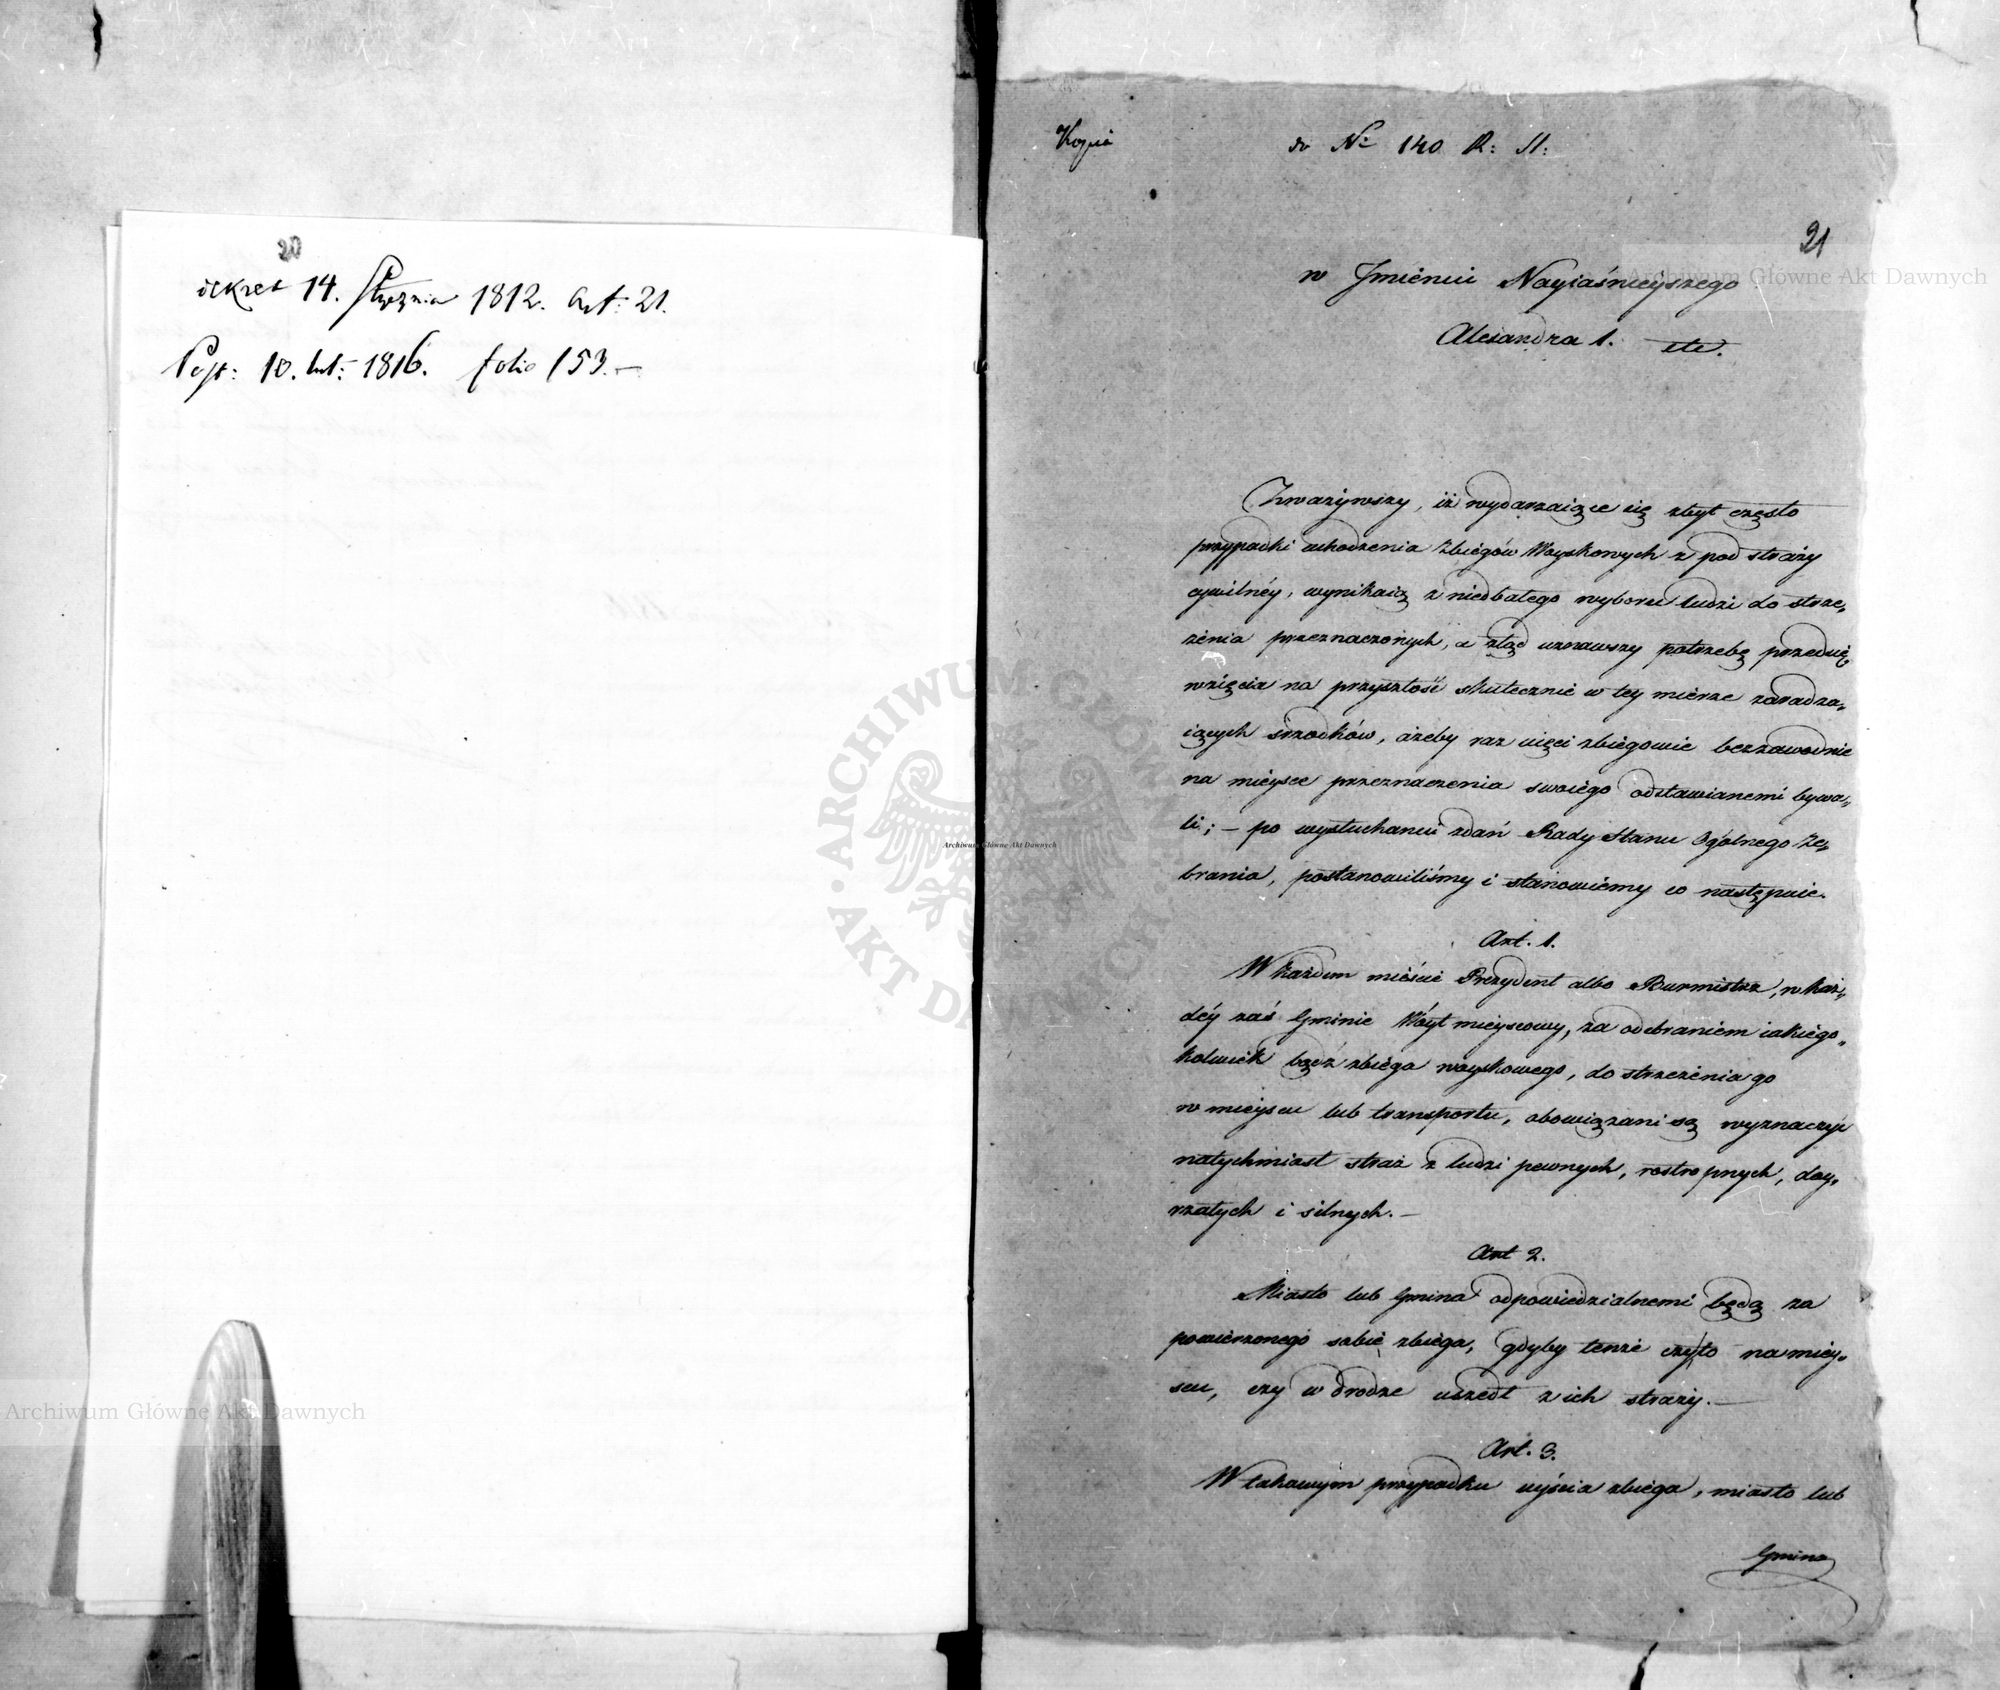 20
dekret 14. Stycznia 1812. art: 21.
Post: 10. lut: 1816. folio 153.—
Kopia
do No 140 R: S:
21
w Jmieniu Nayiaśnieyszego
Alexandra 1. etc.
Zważywszy, iż wydarzaiące się zbyt często
przypadki uchodzenia Zbiegów Woyskowych z pod straży
cywilnéy, wynikaią z niedbałego wyboru ludzi do strze„
żenia przeznaczonych, a ztąd uznawszy potrzebę przedsię„
wzięcia na przyszłość skutecznie w tey mierze zaradza„
iących srzodków, ażeby raz uięci zbiegowie bezzawodnie
na mieysce przeznaczenia swoiégo odstawianemi bywa„
li; — po wysłuchaniu zdań Rady Stanu Ogólnego Ze„
brania, postanowiliśmy i stanowiemy co następuie.
Art. 1.
W każdem mieście Prezydent albo Burmistrz, w każ„
déy zaś Gminie Wóyt mieyscowy, za odebraniem iakiego„
kolwiek bądź zbiega woyskowego, do strzeżenia go
w mieyscu lub transportu, obowiązani są wyznaczyć
natychmiast straż z ludzi pewnych, rostropnych, doy„
rzałych i silnych.—
Art 2.
Miasto lub Gmina odpowiedzialnemi będą za
powierzonego sobie zbiega, gdyby tenże czyto na miey„
scu, czy w drodze uszedł z ich straży.—
Art. 3.
W takowym przypadku uyścia zbiega, miasto lub
Gmina
Archiwum Główne Akt Dawnych
Archiwum Główne Akt Dawnych
Archiwum Główne Akt Dawnych
ARCHIWUM GŁÓWNE AKT DAWNYCH